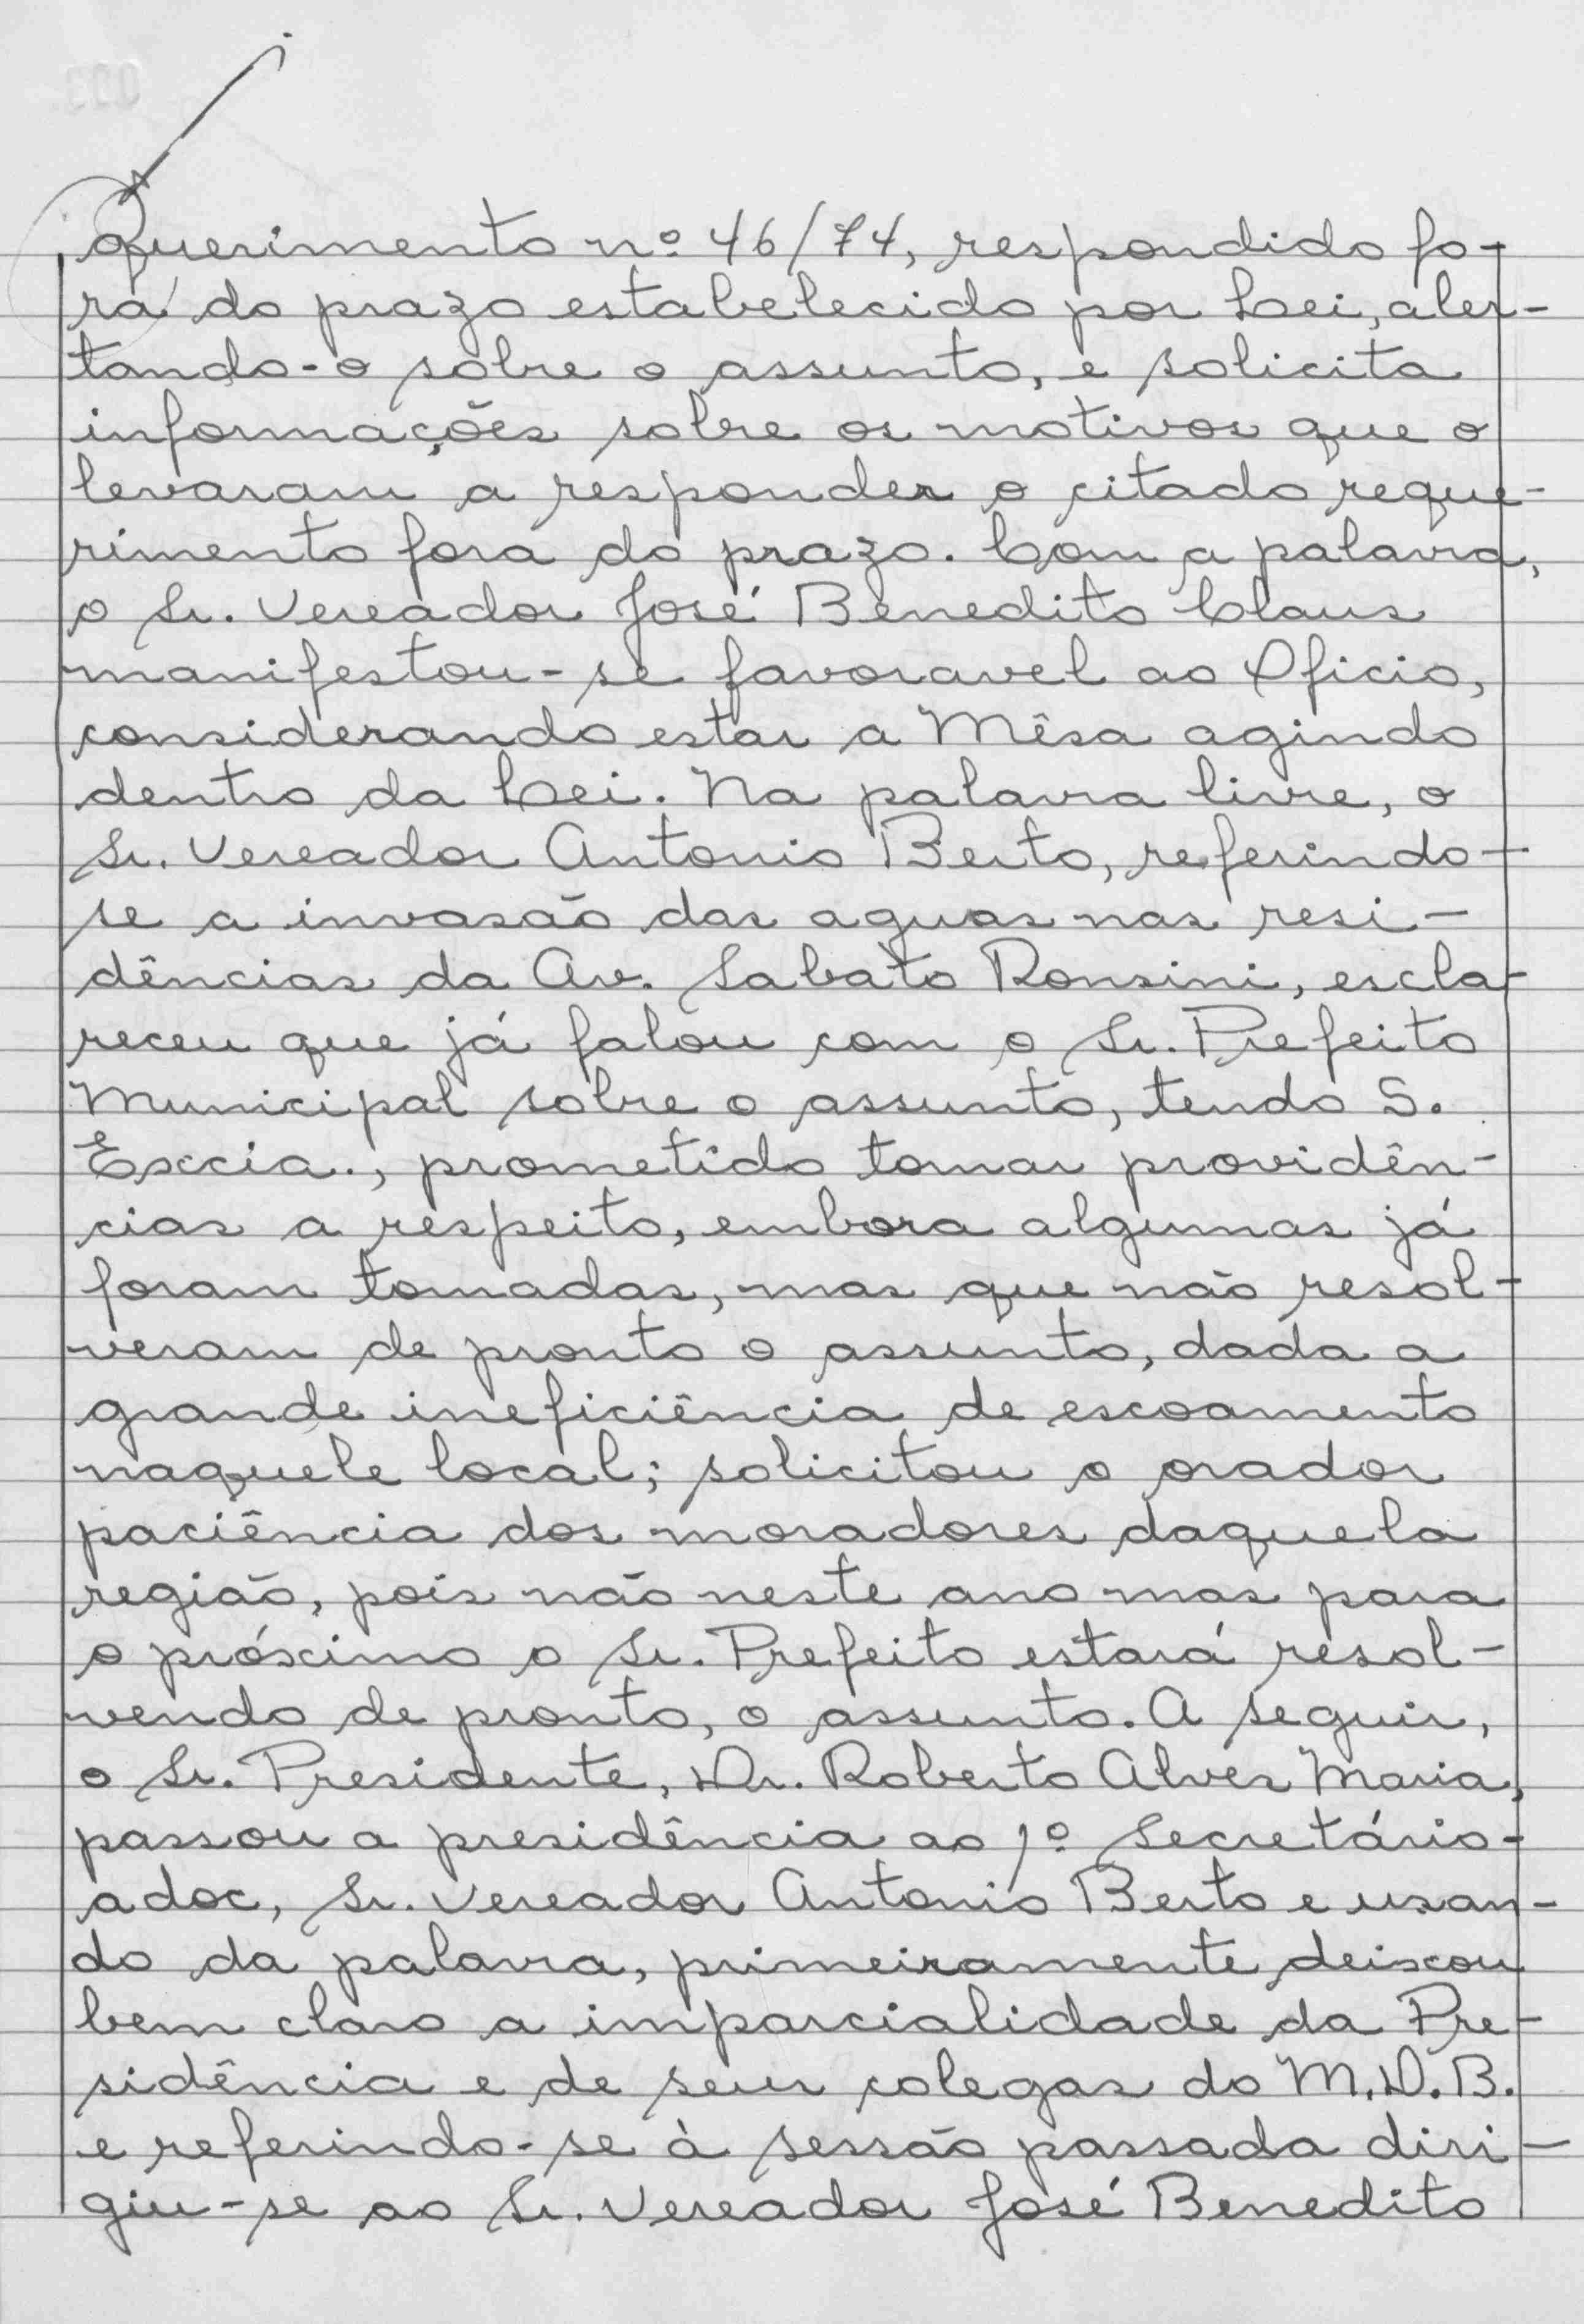 querimento nº 46/74, respondido fo-
ra do prazo estabelecido por Lei, aler-
tando-o sôbre o assunto, e solicita
informações sobre os motivos que o
levaram a responder o citado reque-
rimento fora do prazo. Com a palavra,
o Sr. Vereador José Benedito Claus
manifestou-se favoravel ao Oficio,
considerando estar a Mêsa agindo
dentro da Lei. Na palavra livre, o
Sr. Vereador Antonio Berto, referindo-
se a invasão das aguas nas resi-
dências da Av. Sabato Ronsini, escla-
receu que já falou com o Sr. Prefeito
Municipal sobre o assunto, tendo S.
Excia., prometido tomar providên-
cias a respeito, embora algumas já
foram tomadas, mas que não resol-
veram de pronto o assunto, dada a
grande ineficiência de escoamento
naquele local; solicitou o orador
paciência dos moradores daquela
região, pois não neste ano mas para
o próximo o Sr. Prefeito estará resol-
vendo de pronto, o assunto. A seguir,
o Sr. Presidente, Dr. Roberto Alves Maria,
passou a presidência ao 1º Secretário-
adoc, Sr. Vereador Antonio Berto e usan-
do da palavra, primeiramente deixou
bem claro a imparcialidade da Pre-
sidência e de seus colegas do M.D.B.
e referindo-se à sessão passada diri-
giu-se ao Sr. Vereador José Benedito